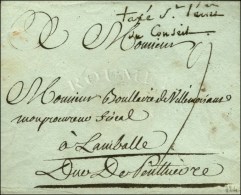 taxé Sr
du Conseil
Monsieur
Monsieur Boullaire de Villemoisans
monprocureur fiscal
a Lamballe
Duc De Penthievre